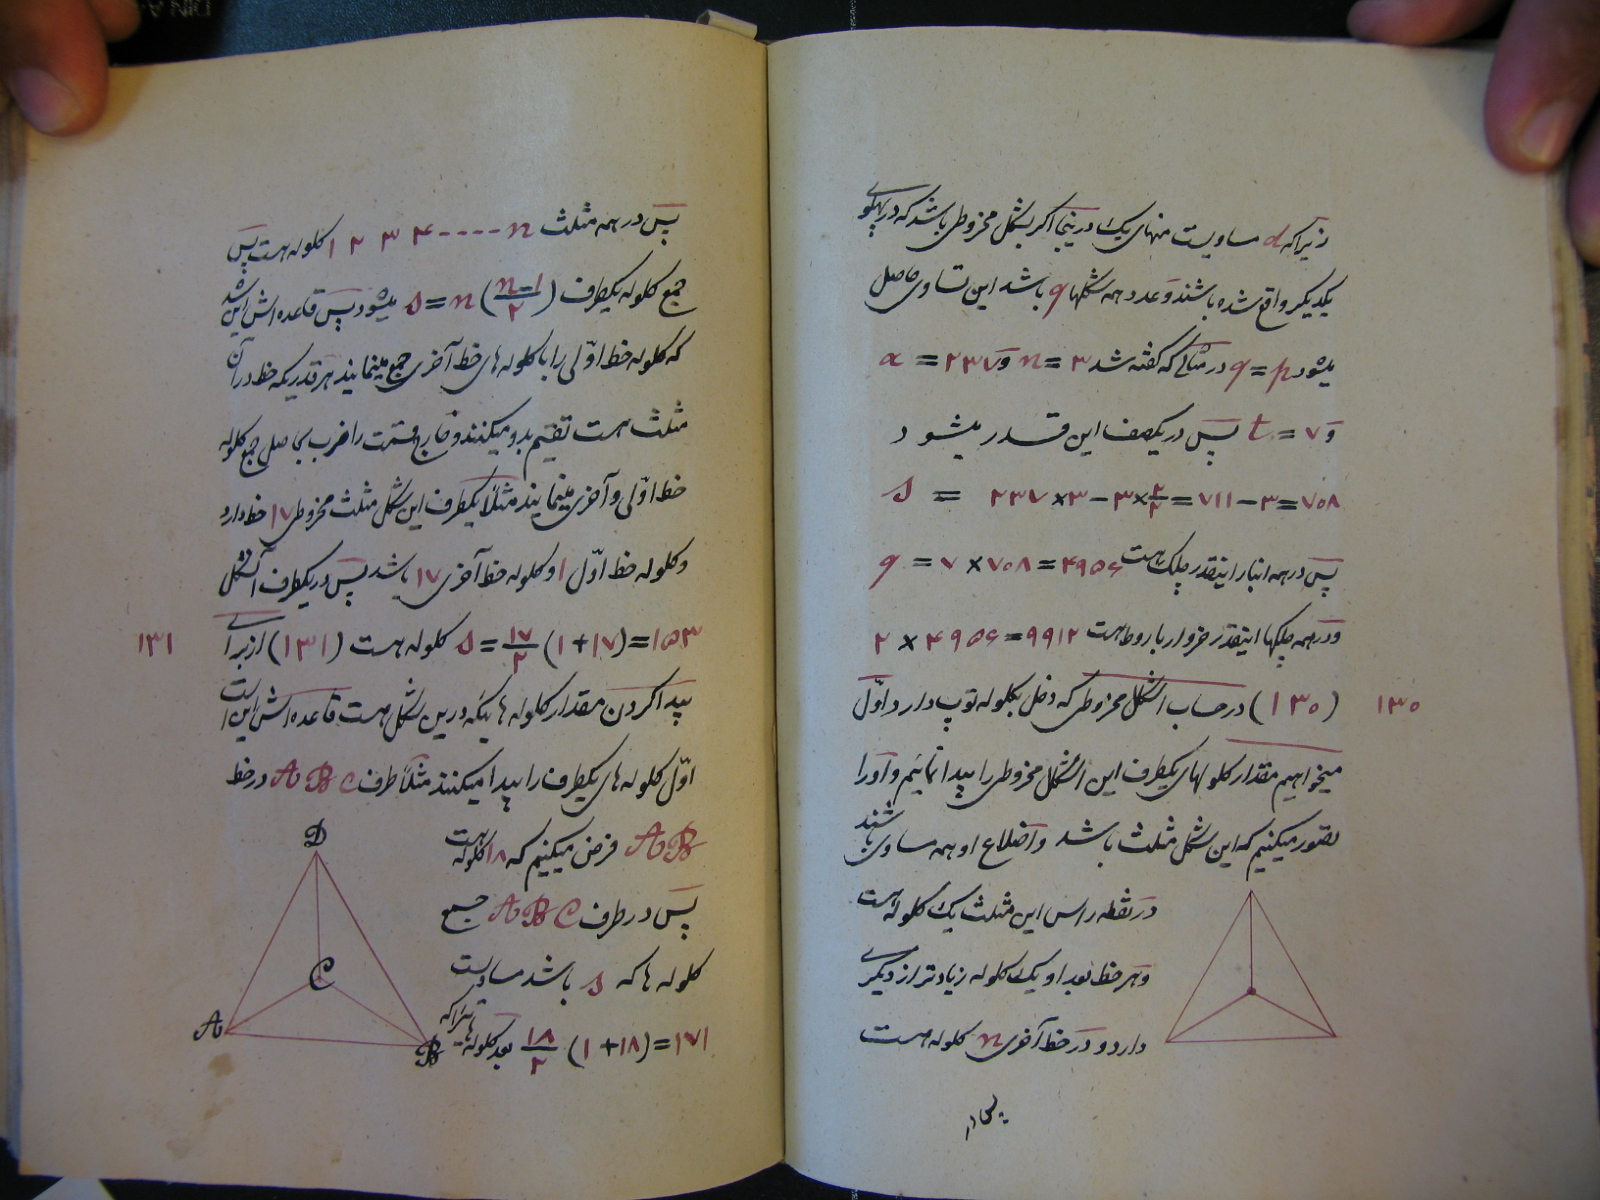 زیراکه d مساویست منهای یک درینجا اکر بشکل مخروطی باشد که در پهلوی
یکدیگر واقع شده باشند و عدد همه شکلها q باشد این تساوی حاصل
میشود q = p در مثالی که کفته شد n = ۳ و a = ۲۳۷
و t = ۷ پس در یکصف این قدر میشود
s = ۲۳۷×۳ − ۳×۲/۲ = ۷۱۱ − ۳ = ۷۰۸
پس در همه انبار اینقدر چلیک هست q = ۷ × ۷۰۸ = ۴۹۵۶
و در همه چلیکها اینقدر خروار باروط هست ۲ × ۴۹۵۶ = ۹۹۱۲
۱۳۰ (۱۳۰) در حساب اشکل مخروطی که دخل بکلوله توپ دارد اوّل
میخواهیم مقدار کلولهای یکطرف این اشکل مخروطی را پیدا نمائیم و او را
تصور میکنیم که این شکل مثلث باشد و اضلاع او همه مساوی باشند
در نقطه راس این مثلث یک کلوله هست
و هر خط بعد او یک کلوله زیادتر از دیگری
دارد و در خط آخری n کلوله هست
پس در همه مثلث ۱ ۲ ۳ ۴ ---- n کلوله هست پس
جمع کلوله یکطرف s = n (n−۱/۲) میشود پس قاعده اش این شد
که کلوله خط اوّلی را با کلوله های خط آخری جمع مینمایند هر قدریکه خط در آن
مثلث هست تقسیم بدو میکنند و خارج قسمت را ضرب بحاصل جمع کلوله
خط اوّلی و آخری مینمایند مثلاً یکطرف این شکل مثلث مخروطی ۱۷ خط دارد
و کلوله خط اوّل ۱ و کلوله خط آخری ۱۷ باشد پس در یکطرف آنشکل
s = ۱۷/۲ (۱ + ۱۷) = ۱۵۳ کلوله هست (۱۳۱) از برای ۱۳۱
پیدا کردن مقدار کلوله ها ییکه درین شکل هست قاعده اش این است
اوّل کلوله های یکطرف را پیدا میکنند مثلاً طرف A B C در خط
A B فرض میکنیم که ۱۸ کلوله است
پس در طرف A B C جمع
کلوله ها که s باشد مساویست
۱۸/۲ (۱ + ۱۸) = ۱۷۱ بعد کلوله
D
C
A
B